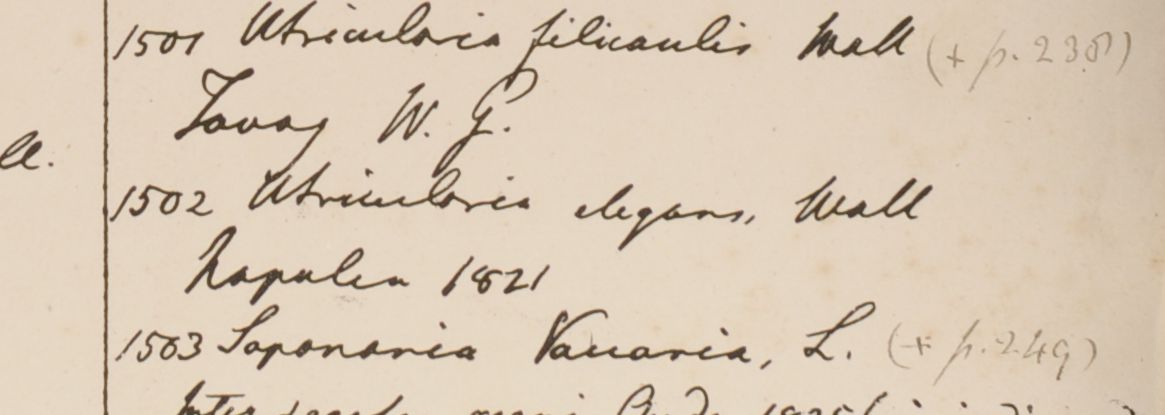 1501 Utricularia filicaulis Wall (+ p. 238)
Tavoy W. G.
ll.
1502 Utricularia elegans, Wall
Napalia 1821
1503 Saponaria Vaccaria, L. (+ p. 249)
Inter 1825